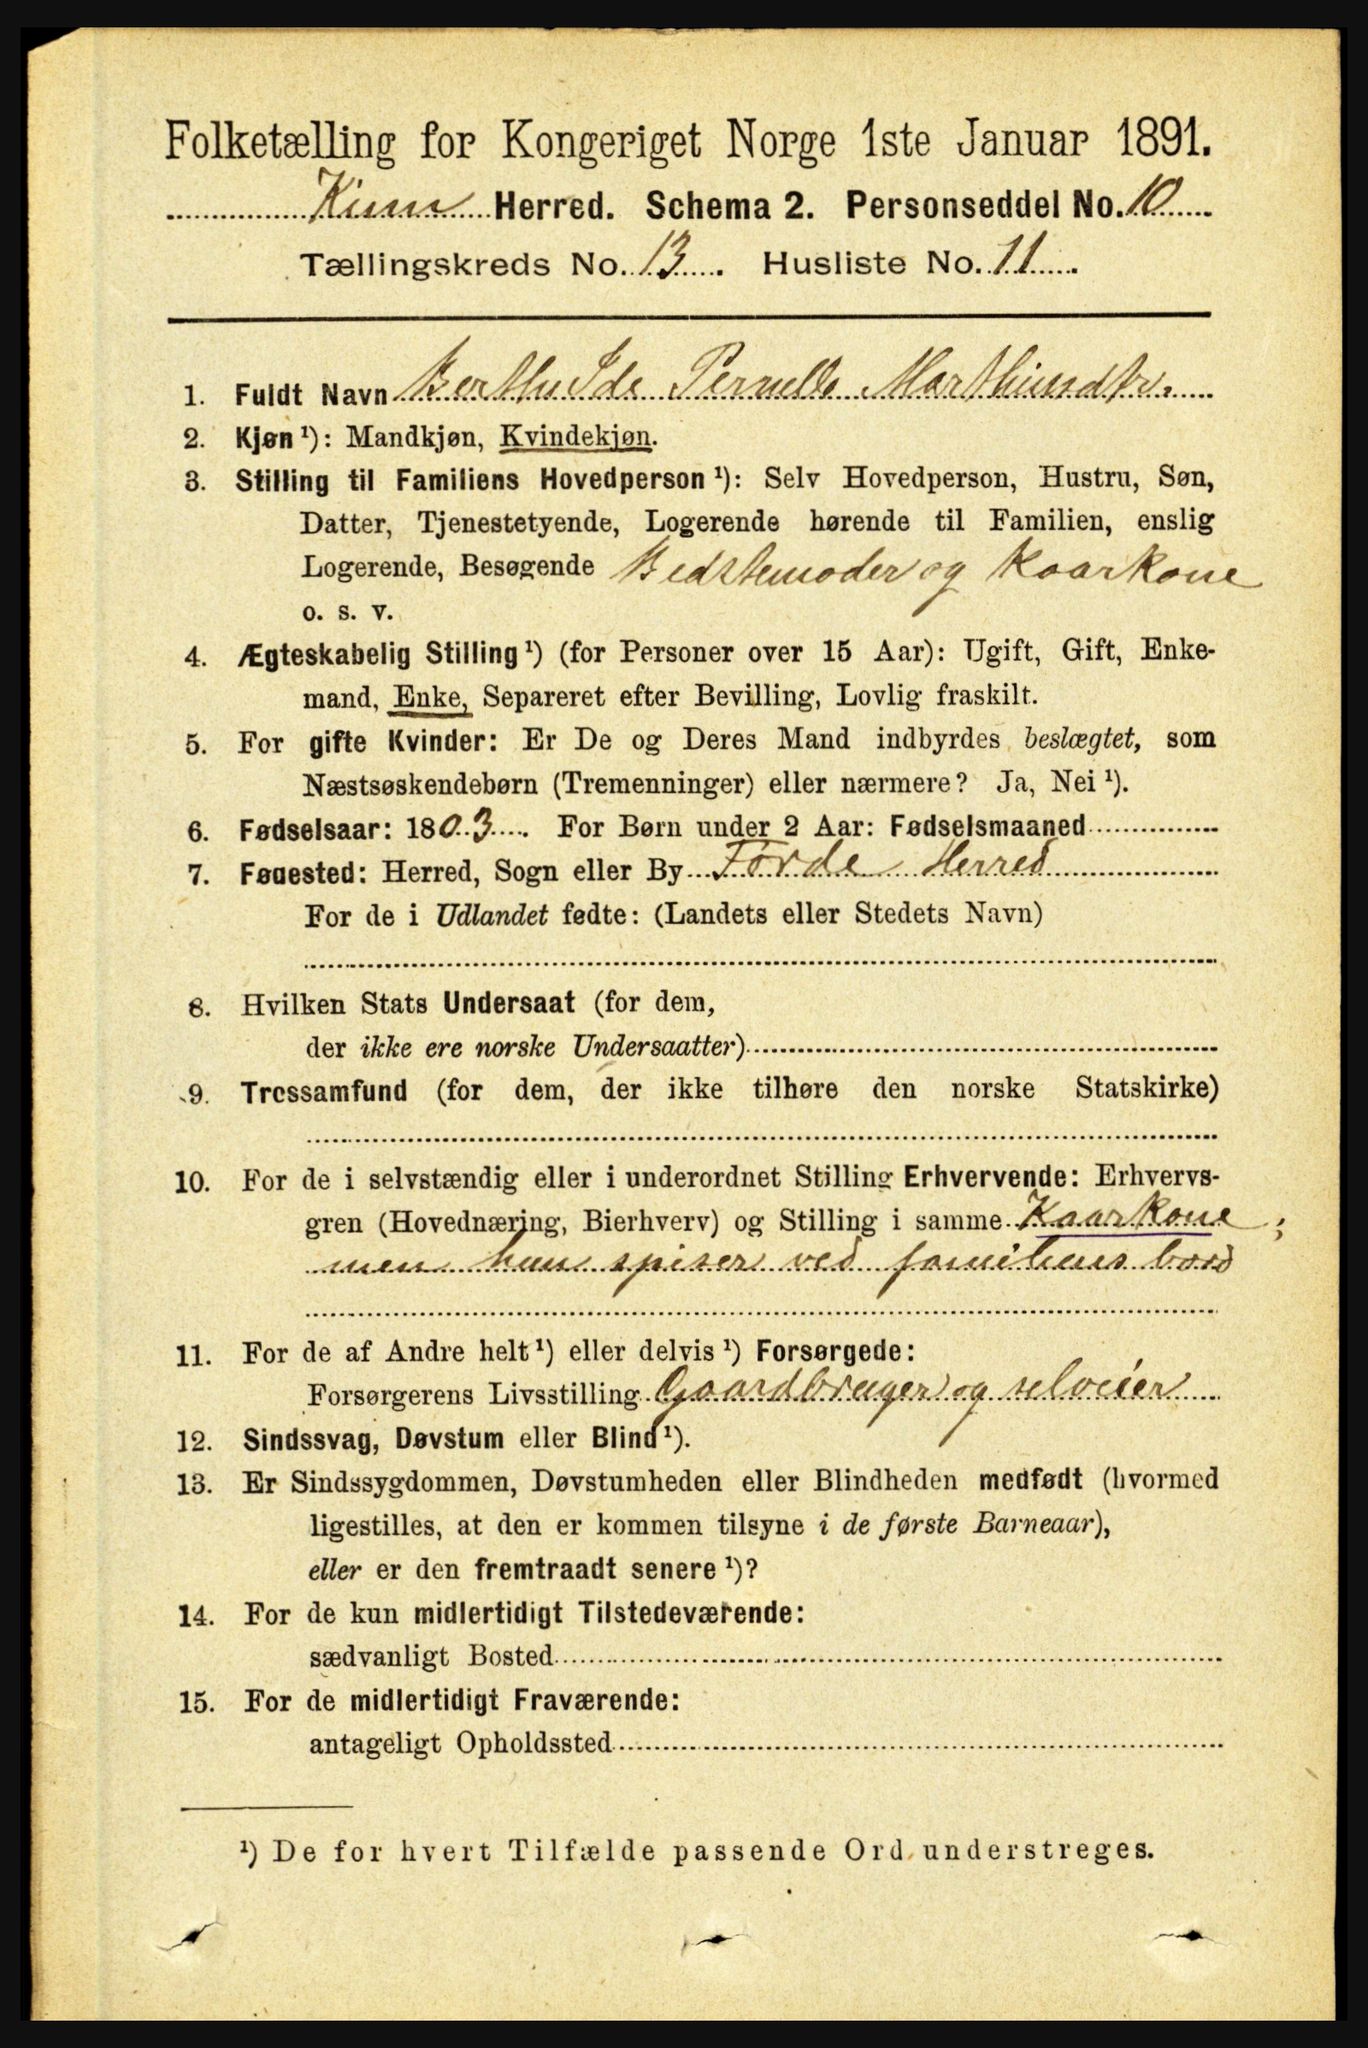 Folketælling for Kongeriget Norge 1ste Januar 1891.
Kinn Herred. Schema 2. Personseddel No. 10
Tællingskreds No. 13. Husliste No. 11.
1. Fuldt Navn Berthe Ide Pernelle Marthinsdtr.
2. Kjøn ¹): Mandkjøn, Kvindekjøn.
3. Stilling til Familiens Hovedperson ¹): Selv Hovedperson, Hustru, Søn,
Datter, Tjenestetyende, Logerende hørende til Familien, enslig
Logerende, Besøgende Bedstemoder og Kaarkone
o. s. v.
4. Ægteskabelig Stilling ¹) (for Personer over 15 Aar): Ugift, Gift, Enke-
mand, Enke, Separeret efter Bevilling, Lovlig fraskilt.
5. For gifte Kvinder: Er De og Deres Mand indbyrdes beslægtet, som
Næstsøskendebørn (Tremenninger) eller nærmere? Ja, Nei ¹).
6. Fødselsaar: 1803. For Børn under 2 Aar: Fødselsmaaned
7. Fødested: Herred, Sogn eller By Førde Herred
For de i Udlandet fødte: (Landets eller Stedets Navn)
8. Hvilken Stats Undersaat (for dem,
der ikke ere norske Undersaatter)
9. Trossamfund (for dem, der ikke tilhøre den norske Statskirke)
10. For de i selvstændig eller i underordnet Stilling Erhvervende: Erhvervs-
gren (Hovednæring, Bierhverv) og Stilling i samme Kaarkone;
men hun spiser ved familiens bord
11. For de af Andre helt ¹) eller delvis ¹) Forsørgede:
Forsørgerens Livsstilling Gaardbruger og selveier
12. Sindssvag, Døvstum eller Blind ¹).
13. Er Sindssygdommen, Døvstumheden eller Blindheden medfødt (hvormed
ligestilles, at den er kommen tilsyne i de første Barneaar),
eller er den fremtraadt senere ¹)?
14. For de kun midlertidigt Tilstedeværende:
sædvanligt Bosted
15. For de midlertidigt Fraværende:
antageligt Opholdssted
¹) De for hvert Tilfælde passende Ord understreges.